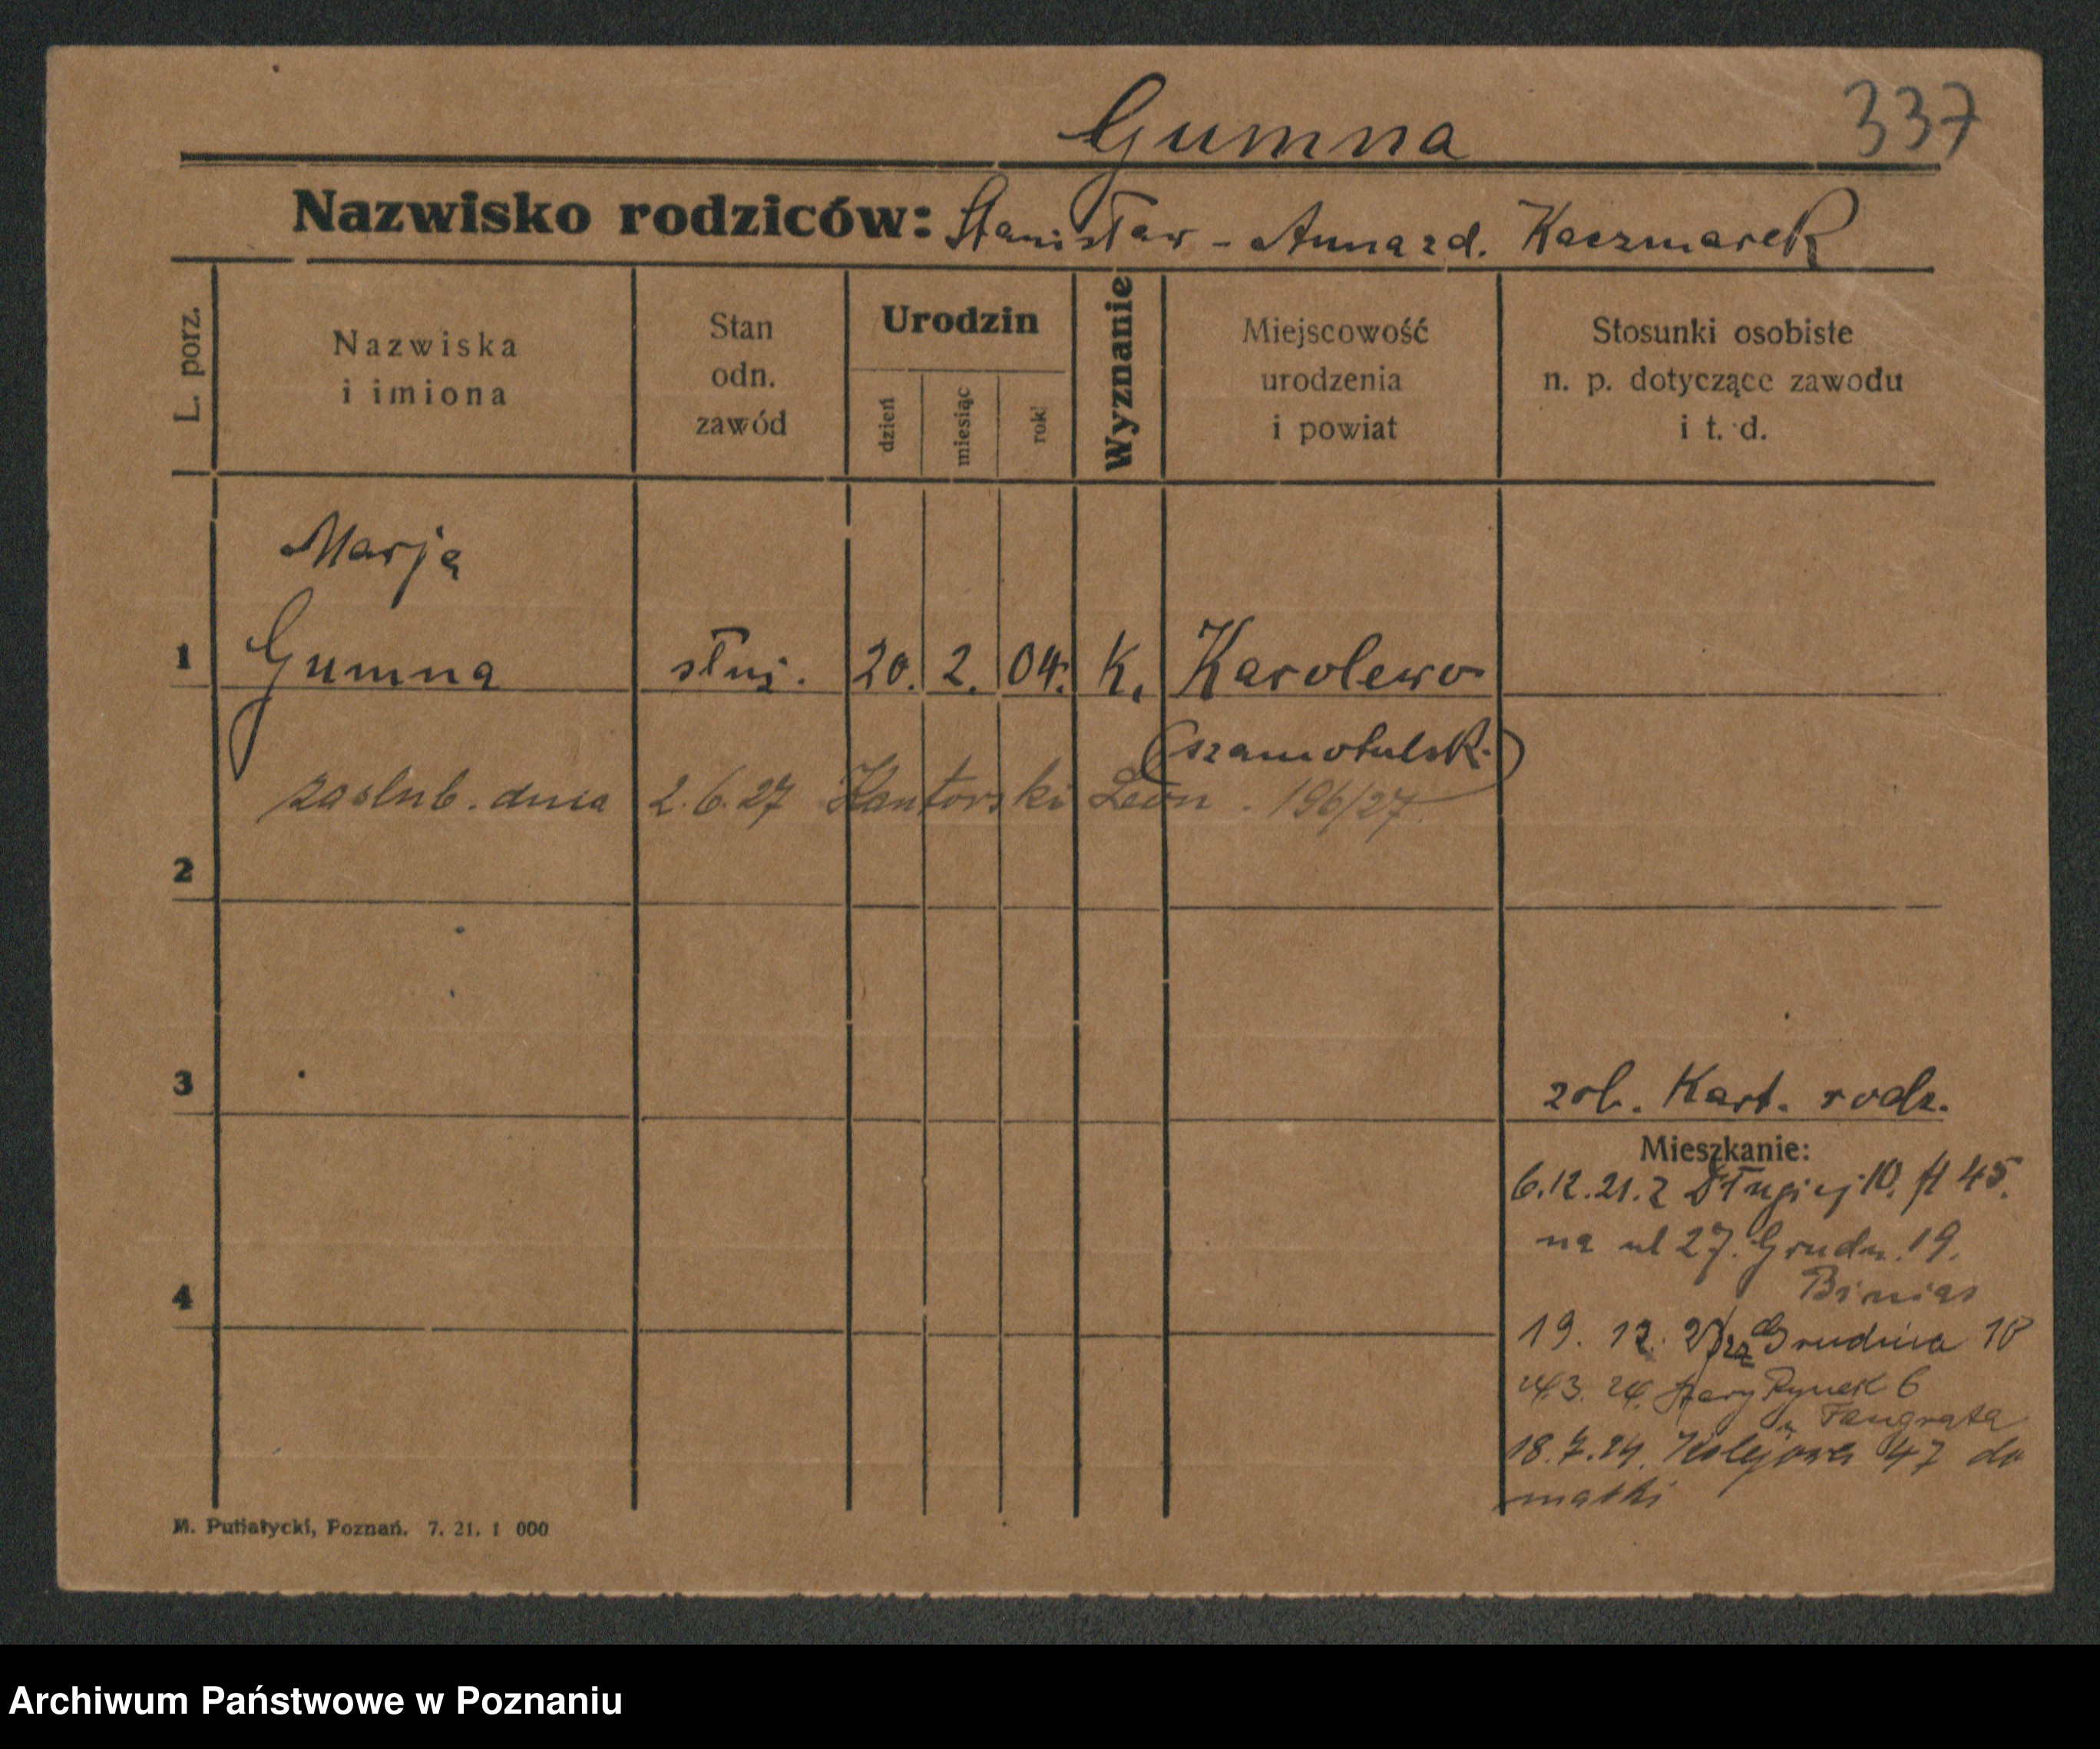 Gumna
337
Nazwisko rodziców: Stanisław - Anna zd. Kaczmarek
L. porz.
Nazwiska
i imiona
Stan
odn.
zawód
Urodzin
dzień
miesiąc
rok
Wyznanie
Miejscowość
urodzenia
i powiat
Stosunki osobiste
n. p. dotyczące zawodu
i t. d.
Marja
1 Gumna służ. 20. 2. 04. K. Karolewo
(szamotulsk.)
zaślub. dnia 2.6.27 Kantorski Leon. 196/27
2
3
zob. Kart. rodz.
Mieszkanie:
6.12.21. z Długiej 10. 45.
na ul 27. Grudn. 19.
4
19. 12. Grudnia 18
24.3.24. Stary Rynek 6
18.7.24. Kolejowa 47 do
matki
M. Putiatycki, Poznań. 7. 21. 1 000
Archiwum Państwowe w Poznaniu